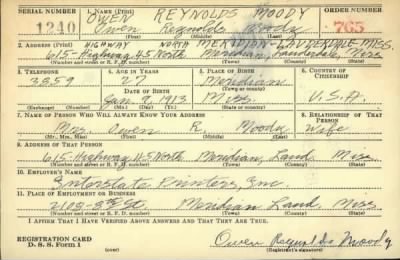 SERIAL NUMBER 1. NAME (Print) ORDER NUMBER
OWEN REYNOLDS MOODY
1240 Owen Reynolds Moody 765
(First) (Middle) (Last)
2. ADDRESS (Print) HIGHWAY NORTH MERIDIAN-LAUDERDALE-MISS.
615-Highway 45 North Meridian, Lauderdale, Miss
(Number and street or R. F. D. number) (Town) (County) (State)
3. TELEPHONE 4. AGE IN YEARS 5. PLACE OF BIRTH 6. COUNTRY OF CITIZENSHIP
3359 27 Meridian
DATE OF BIRTH (Town or county)
Jan 9 1913 Miss. U.S.A.
(Exchange) (Number) (Mo.) (Day) (Yr.) (State or country)
7. NAME OF PERSON WHO WILL ALWAYS KNOW YOUR ADDRESS 8. RELATIONSHIP OF THAT PERSON
Mrs Owen R. Moody Wife
(Mr., Mrs., Miss) (First) (Middle) (Last)
9. ADDRESS OF THAT PERSON
615-Highway 45 North Meridian, Laud Miss
(Number and street or R. F. D. number) (Town) (County) (State)
10. EMPLOYER'S NAME
Interstate Printers, Inc
11. PLACE OF EMPLOYMENT OR BUSINESS
Meridian Laud Miss
(Number and street or R. F. D. number) (Town) (County) (State)
I AFFIRM THAT I HAVE VERIFIED ABOVE ANSWERS AND THAT THEY ARE TRUE.
REGISTRATION CARD
D. S. S. Form 1 (over) Owen Reynolds Moody
(Registrant's signature)